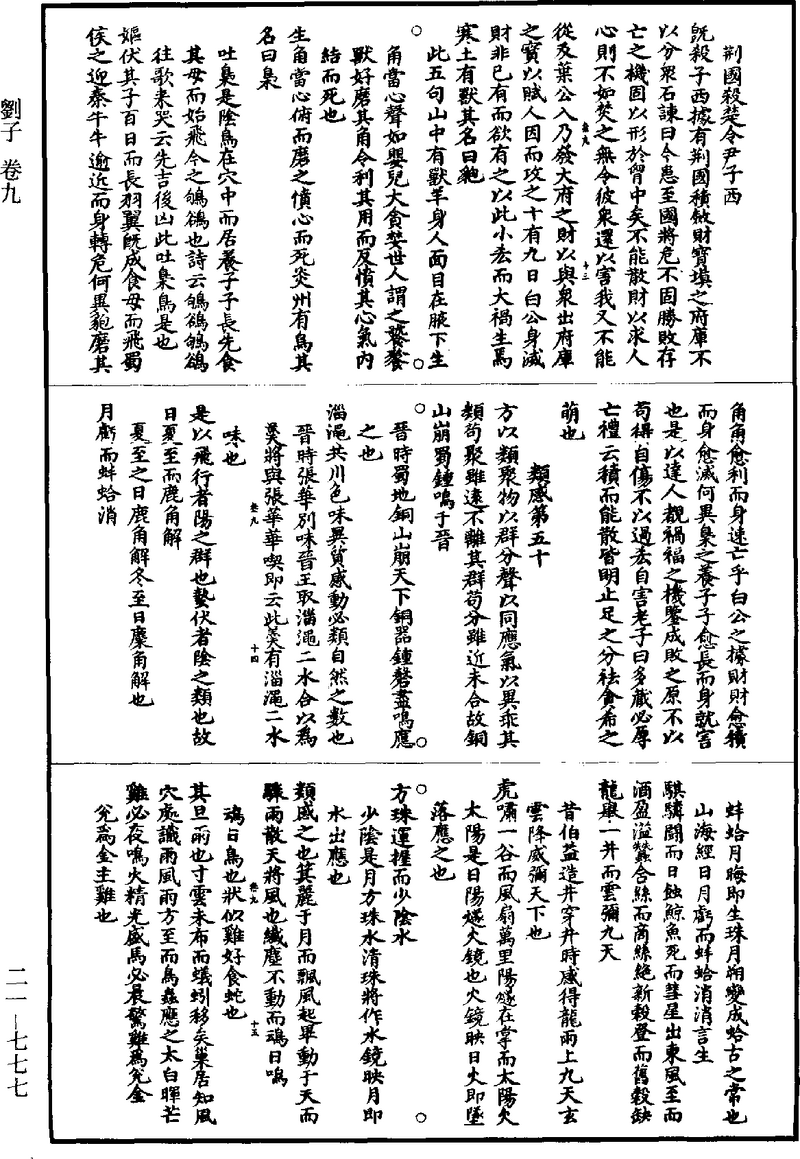 荆國殺楚令尹子西
旣殺子西據有荆國積斂財寶填之府庫不
以分衆石諫曰今患至國將危不固勝敗存
亡之機固以形於胷中矣不能散財以求人
心則不如焚之無令彼衆還以害我又不能
從及葉公入乃發大府之財以與衆出府庫
之寶以賦人因而攻之十有九日白公身滅
財非己有而欲有之以此小恡而大禍生焉
寒土有獸其名曰䶂
此五句山中有獸羊身人面目在腋下生
角當心聲如嬰兒大貪婪世人謂之饕餮
獸好磨其角令利其用而反憤其心氣内
結而死也
生角當心俯而磨之憤心而死炎州有鳥其
名曰梟
吐梟是陰鳥在穴中而居養子子長先食
其母而始飛今之鴝鵒也詩云鴝鵒鴝鵒
往歌來哭云先吉後凶此吐梟鳥是也
嫗伏其子百日而長羽翼旣成食母而飛蜀
侯之迎秦牛牛逾近而身轉危何異䶂磨其
劉子 卷九
角角愈利而身速亡乎白公之據財財愈積
而身愈滅何異梟之養子子愈長而身就害
也是以達人覩禍福之機鑒成敗之原不以
苟得自傷不以過恡自害老子曰多藏必厚
亡禮云積而能散皆明止足之分祛貪吝之
萌也
類感第五十
方以類聚物以群分聲以同應氣以異乖其
類苟聚雖遠不離其群苟分雖近未合故銅
山崩蜀鍾鳴于晉
晉時蜀地銅山崩天下銅器鍾磬盡鳴應
之也
淄澠共川色味異質感動必類自然之數也
晉時張華別味晉王取淄澠二水合以爲
羹將與張華華喫即云此羹有淄澠二水
味也
是以飛行者陽之群也蟄伏者陰之類也故
日夏至而鹿角解
夏至之日鹿角解冬至日麋角解也
月虧而蚌蛤消
蚌蛤月晦即生珠月朔變成蛤古之常也
山海經日月虧而蚌蛤消消言生
騏驎鬪而日蝕鯨魚死而彗星出東風至而
酒盈溢蠶合絲而商絲絕新穀登而舊穀缺
龍舉一井而雲彌九天
昔伯益造井穿井時感得龍雨上九天玄
雲降感彌天下也
虎嘯一谷而風扇萬里陽燧在掌而太陽火
太陽是日陽燧火鏡也火鏡映日火即墜
落應之也
方珠運握而少陰水
少陰是月方珠水清珠將作水鏡映月即
水出應也
類感之也箕麗于月而飄風起畢動于天而
驟雨散天將風也纖塵不動而䳃日鳴
䳃日鳥也狀似雞好食蛇也
其旦雨也寸雲未布而蟻蚓移矣巢居知風
穴處識雨風雨方至而鳥蟲應之太白暉芒
雞必夜鳴火精光盛馬必晨驚雞爲兊金
兊爲金主雞也
二一—七七七